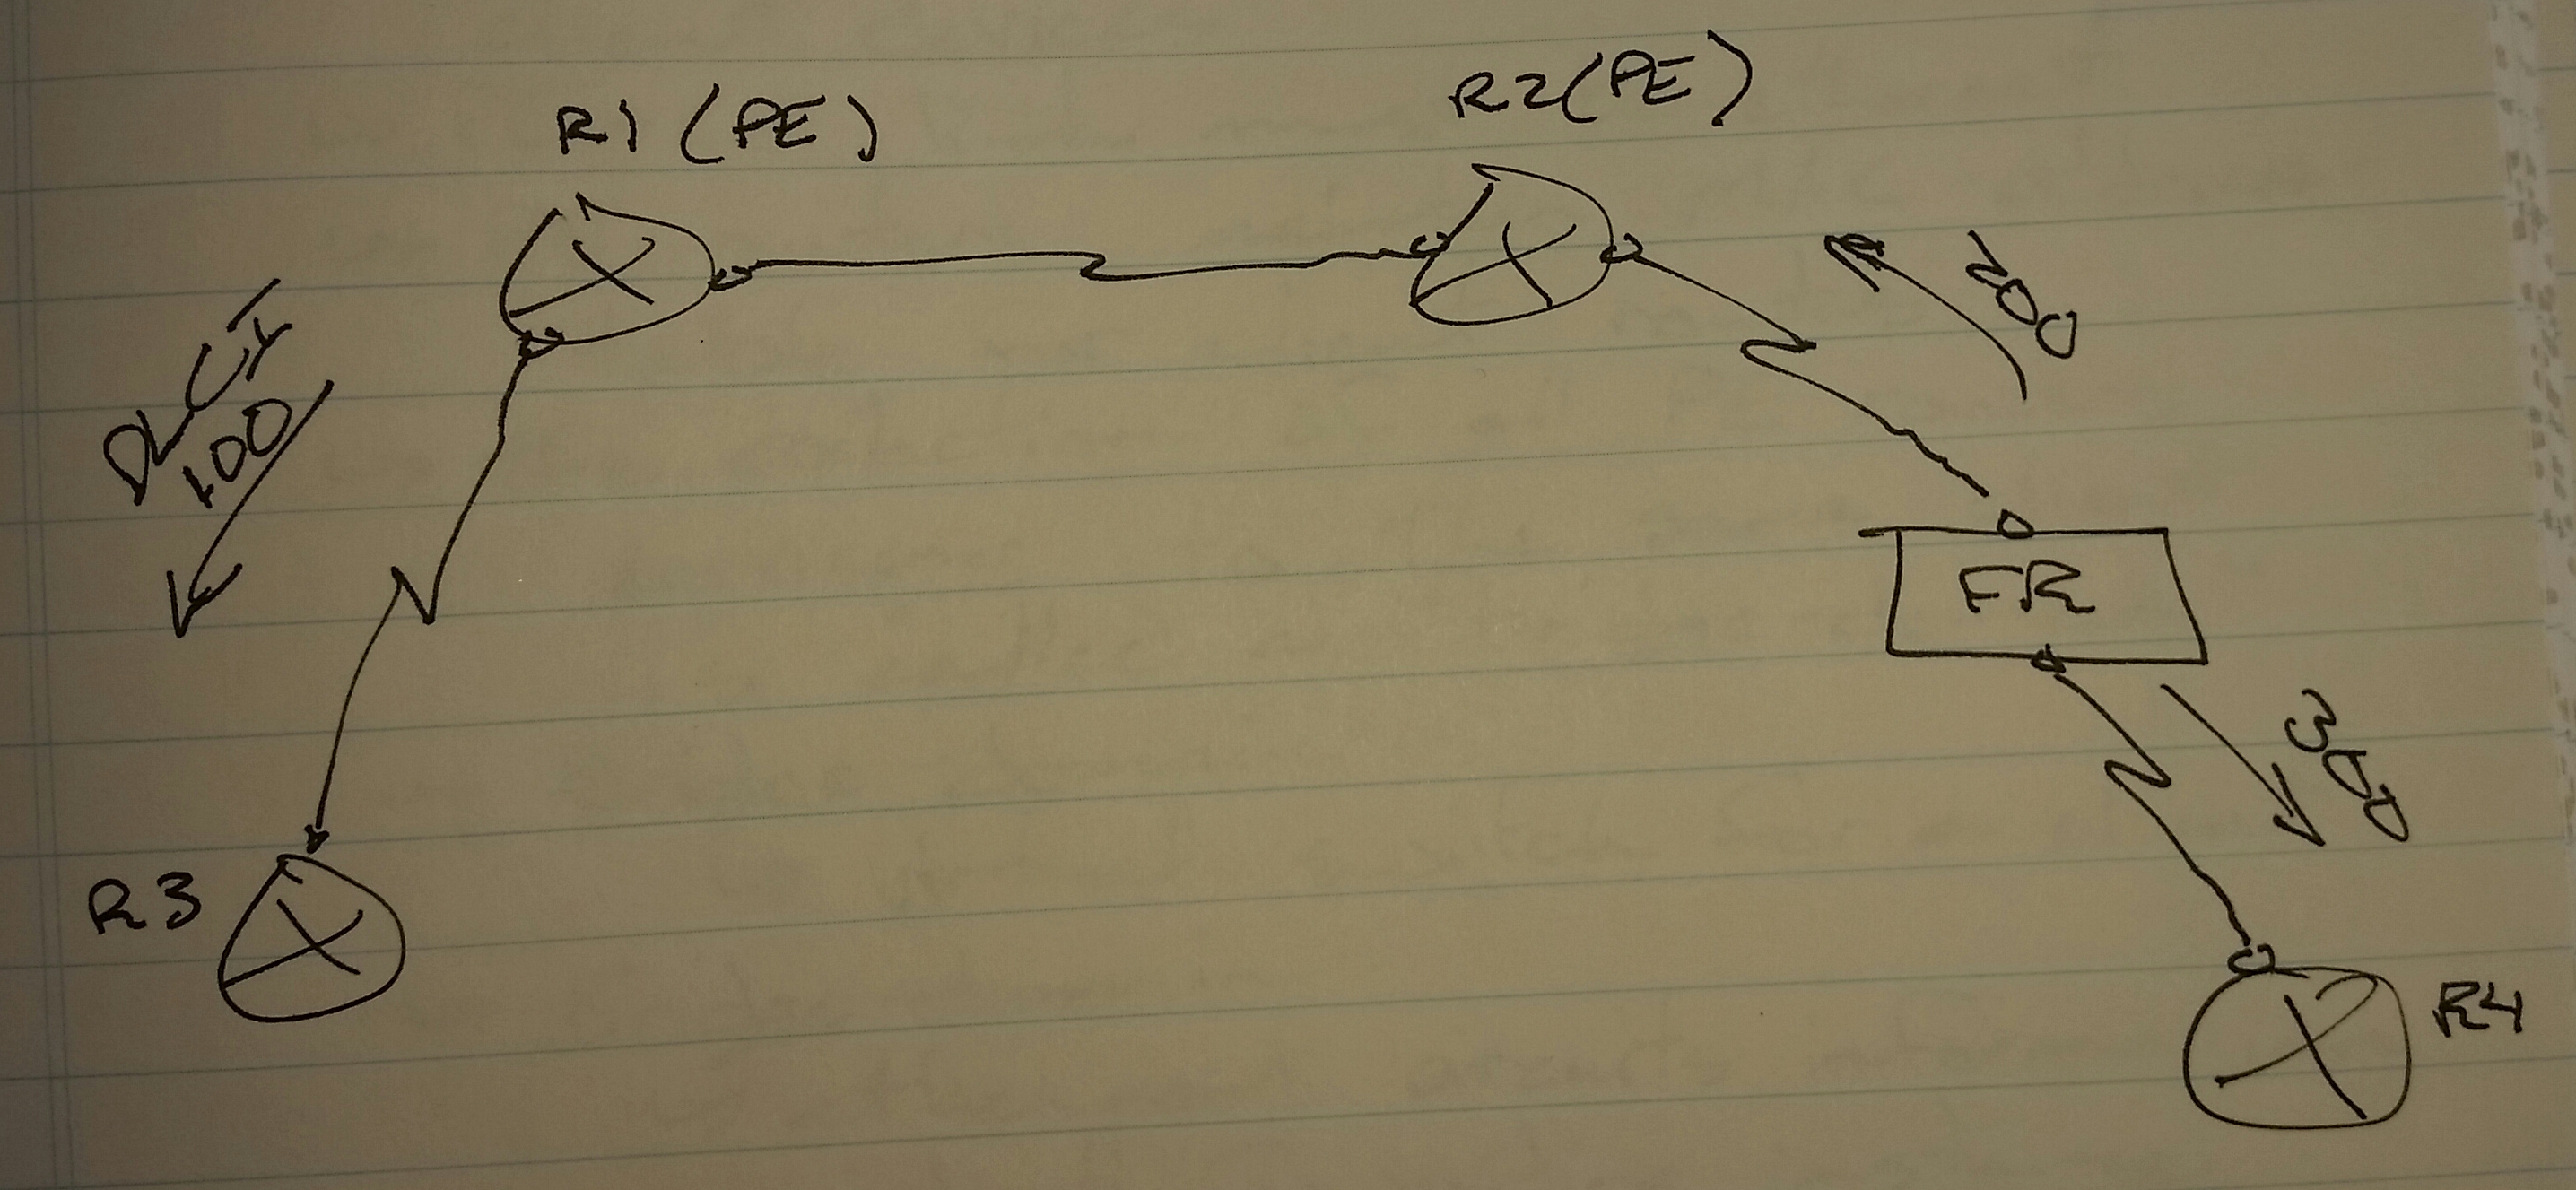 R1 (PE)
R2 (PE)
DLCI
100
200
FR
300
R3
R4